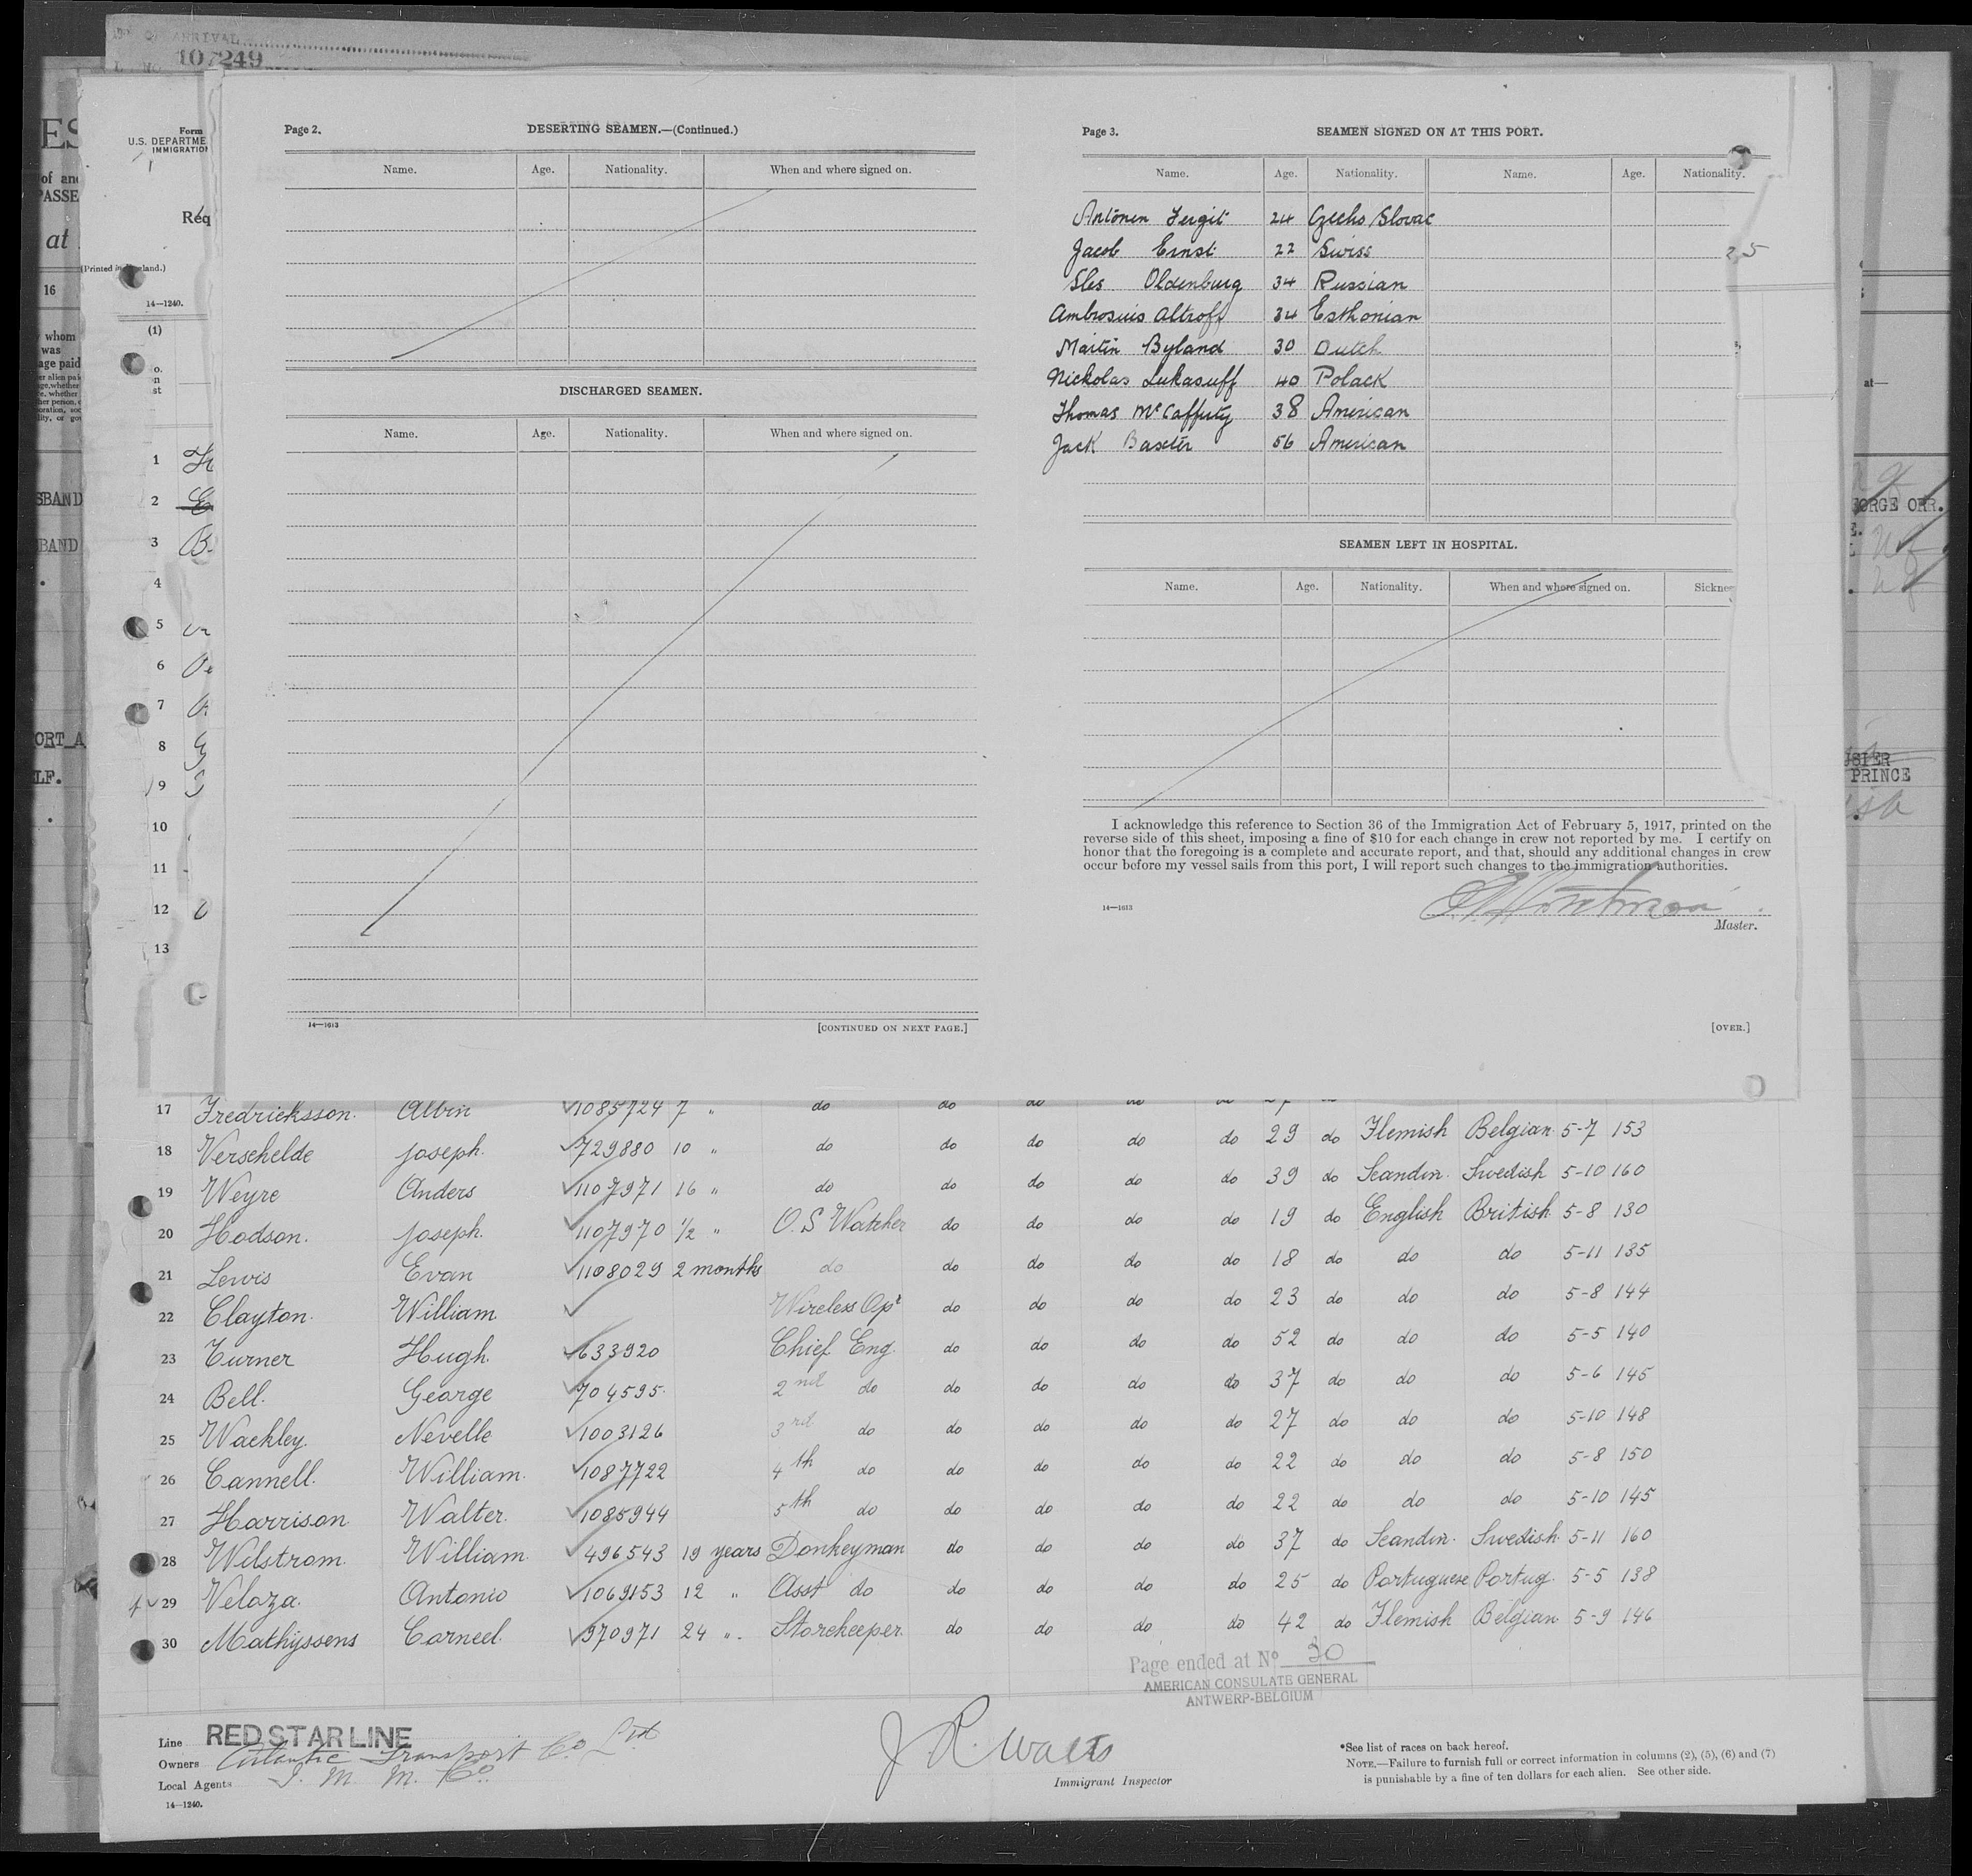 OF ARRIVAL
107249
Form
U.S. DEPARTME
IMMIGRATION
Req
14—1240.
(1)
Page 2.
DESERTING SEAMEN.—(Continued.)
Name. Age. Nationality. When and where signed on.
DISCHARGED SEAMEN.
Name. Age. Nationality. When and where signed on.
14—1613
[CONTINUED ON NEXT PAGE.]
Page 3.
SEAMEN SIGNED ON AT THIS PORT.
Name. Age. Nationality. Name. Age. Nationality.
Antonen 24 Czecho/Slovac
Jacob Ernst 22 Swiss
Oldenburg 34 Russian
Ambrosius Altroff 34 Esthonian
Martin Byland 30 Dutch
Nickolas Lukasuff 40 Polack
Thomas McCafferty 38 American
Jack Baxter 56 American
SEAMEN LEFT IN HOSPITAL.
Name. Age. Nationality. When and where signed on.
I acknowledge this reference to Section 36 of the Immigration Act of February 5, 1917, printed on the
reverse side of this sheet, imposing a fine of $10 for each change in crew not reported by me. I certify on
honor that the foregoing is a complete and accurate report, and that, should any additional changes in crew
occur before my vessel sails from this port, I will report such changes to the immigration authorities.
14—1613
Master.
[OVER.]
17 Fredricksson. Albin 1085724 7 " do do
18 Verschelde Joseph. 729880 10 " do do do do do 29 do Flemish Belgian 5-7 153
19 Weyre Anders 1107971 16 " do do do do do 39 do Scandin. Swedish 5-10 160
20 Hodson. Joseph. 1107970 1/2 " O.S Watcher do do do do 19 do English British 5-8 130
21 Lewis Evan 1108029 2 months do do do do do 18 do do do 5-11 135
22 Clayton. William Wireless Opr do do do do 23 do do do 5-8 144
23 Turner Hugh. 633920 Chief Eng. do do do do 52 do do do 5-5 140
24 Bell. George 704595. 2nd do do do do do 37 do do do 5-6 145
25 Wackley. Nevelle 1003126 3rd do do do do do 27 do do do 5-10 148
26 Cannell. William. 1087722 4th do do do do do 22 do do do 5-8 150
27 Harrison Walter. 1085944 5th do do do do do 22 do do do 5-10 145
28 Wilstrom William 496543 19 years Donkeyman do do do do 37 do Scandin. Swedish 5-11 160
29 Veloza. Antonio 1069153 12 " Asst do do do do do 25 do Portuguese Portug. 5-5 138
30 Mathyssens Corneel. 970971 24 " Storekeeper do do do do 42 do Flemish Belgian 5-9 146
Page ended at No 30
AMERICAN CONSULATE GENERAL
ANTWERP-BELGIUM
Line RED STAR LINE
Owners Atlantic Transport Co Ltd
Local Agents I. M. M. Co.
14—1240.
J R. Watts
Immigrant Inspector
*See list of races on back hereof.
NOTE.—Failure to furnish full or correct information in columns (2), (5), (6) and (7)
is punishable by a fine of ten dollars for each alien. See other side.